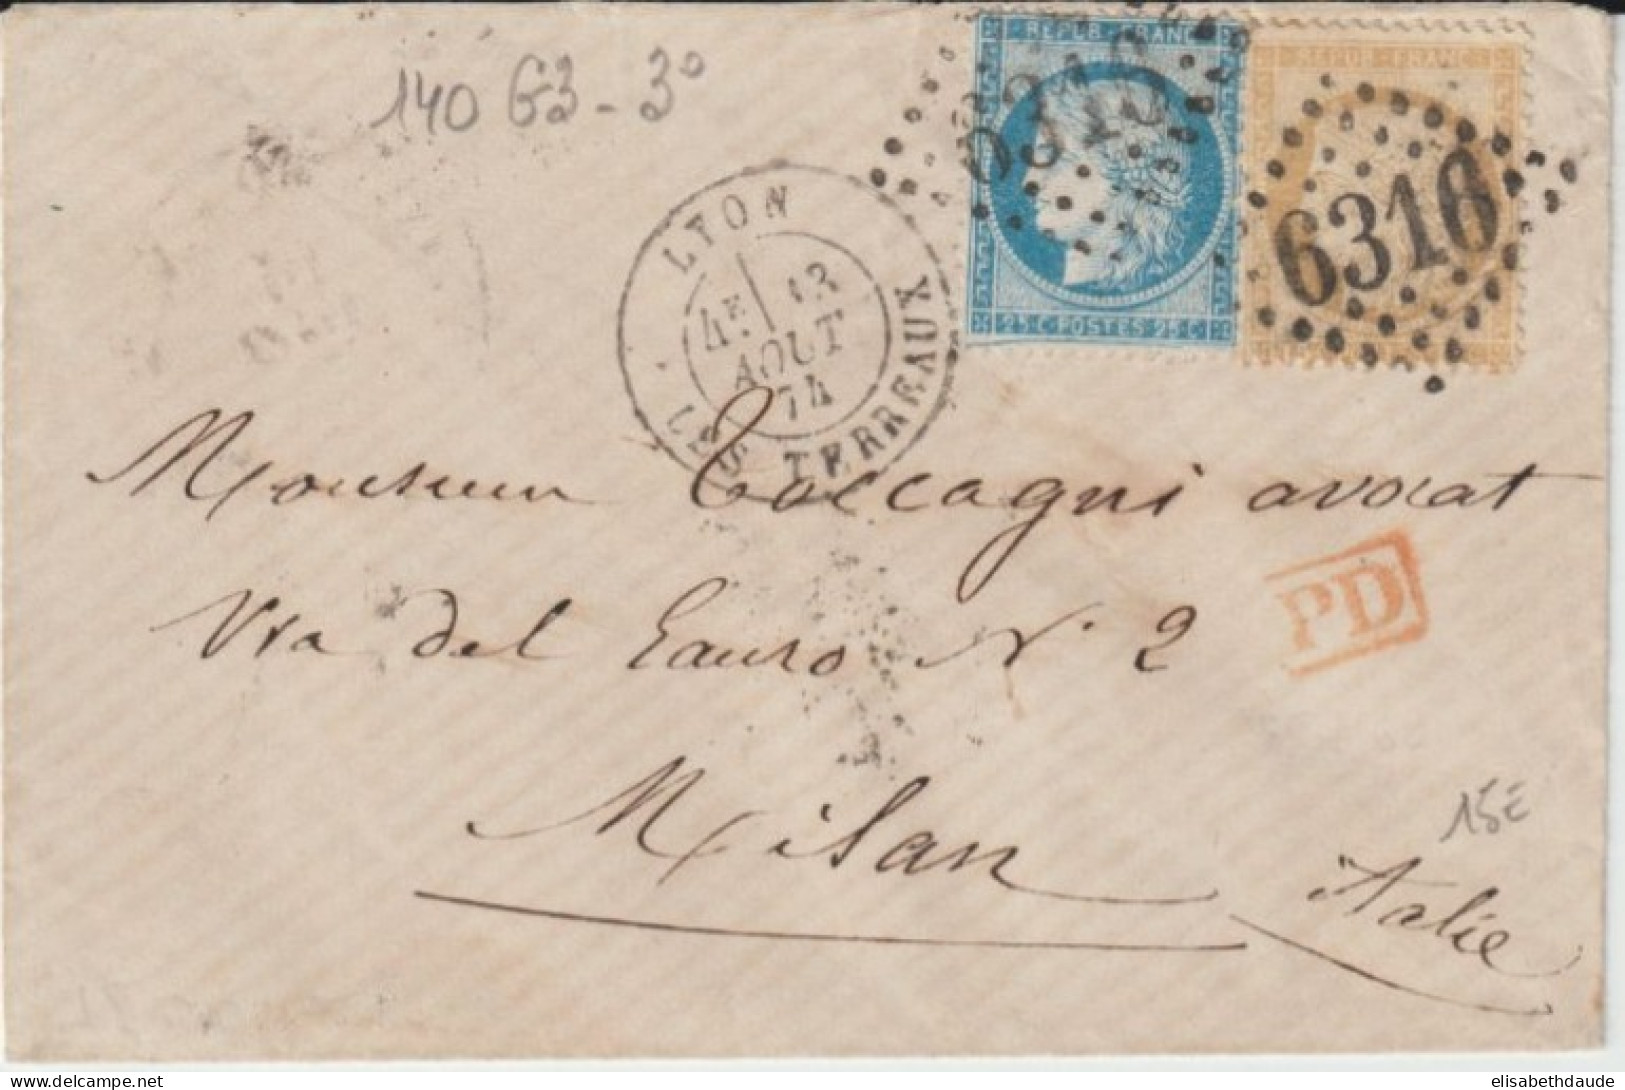 140 G3 - 3°
REPUB. FRANC.
6316
25 C POSTES 25 C
REPUB. FRANC.
6316
LYON
4E 13
AOUT
74
LES TERREAUX
Monsieur Toccagni avocat
Via del Lauro N° 2
PD
Milan
15E
Italie
elisabethdaude